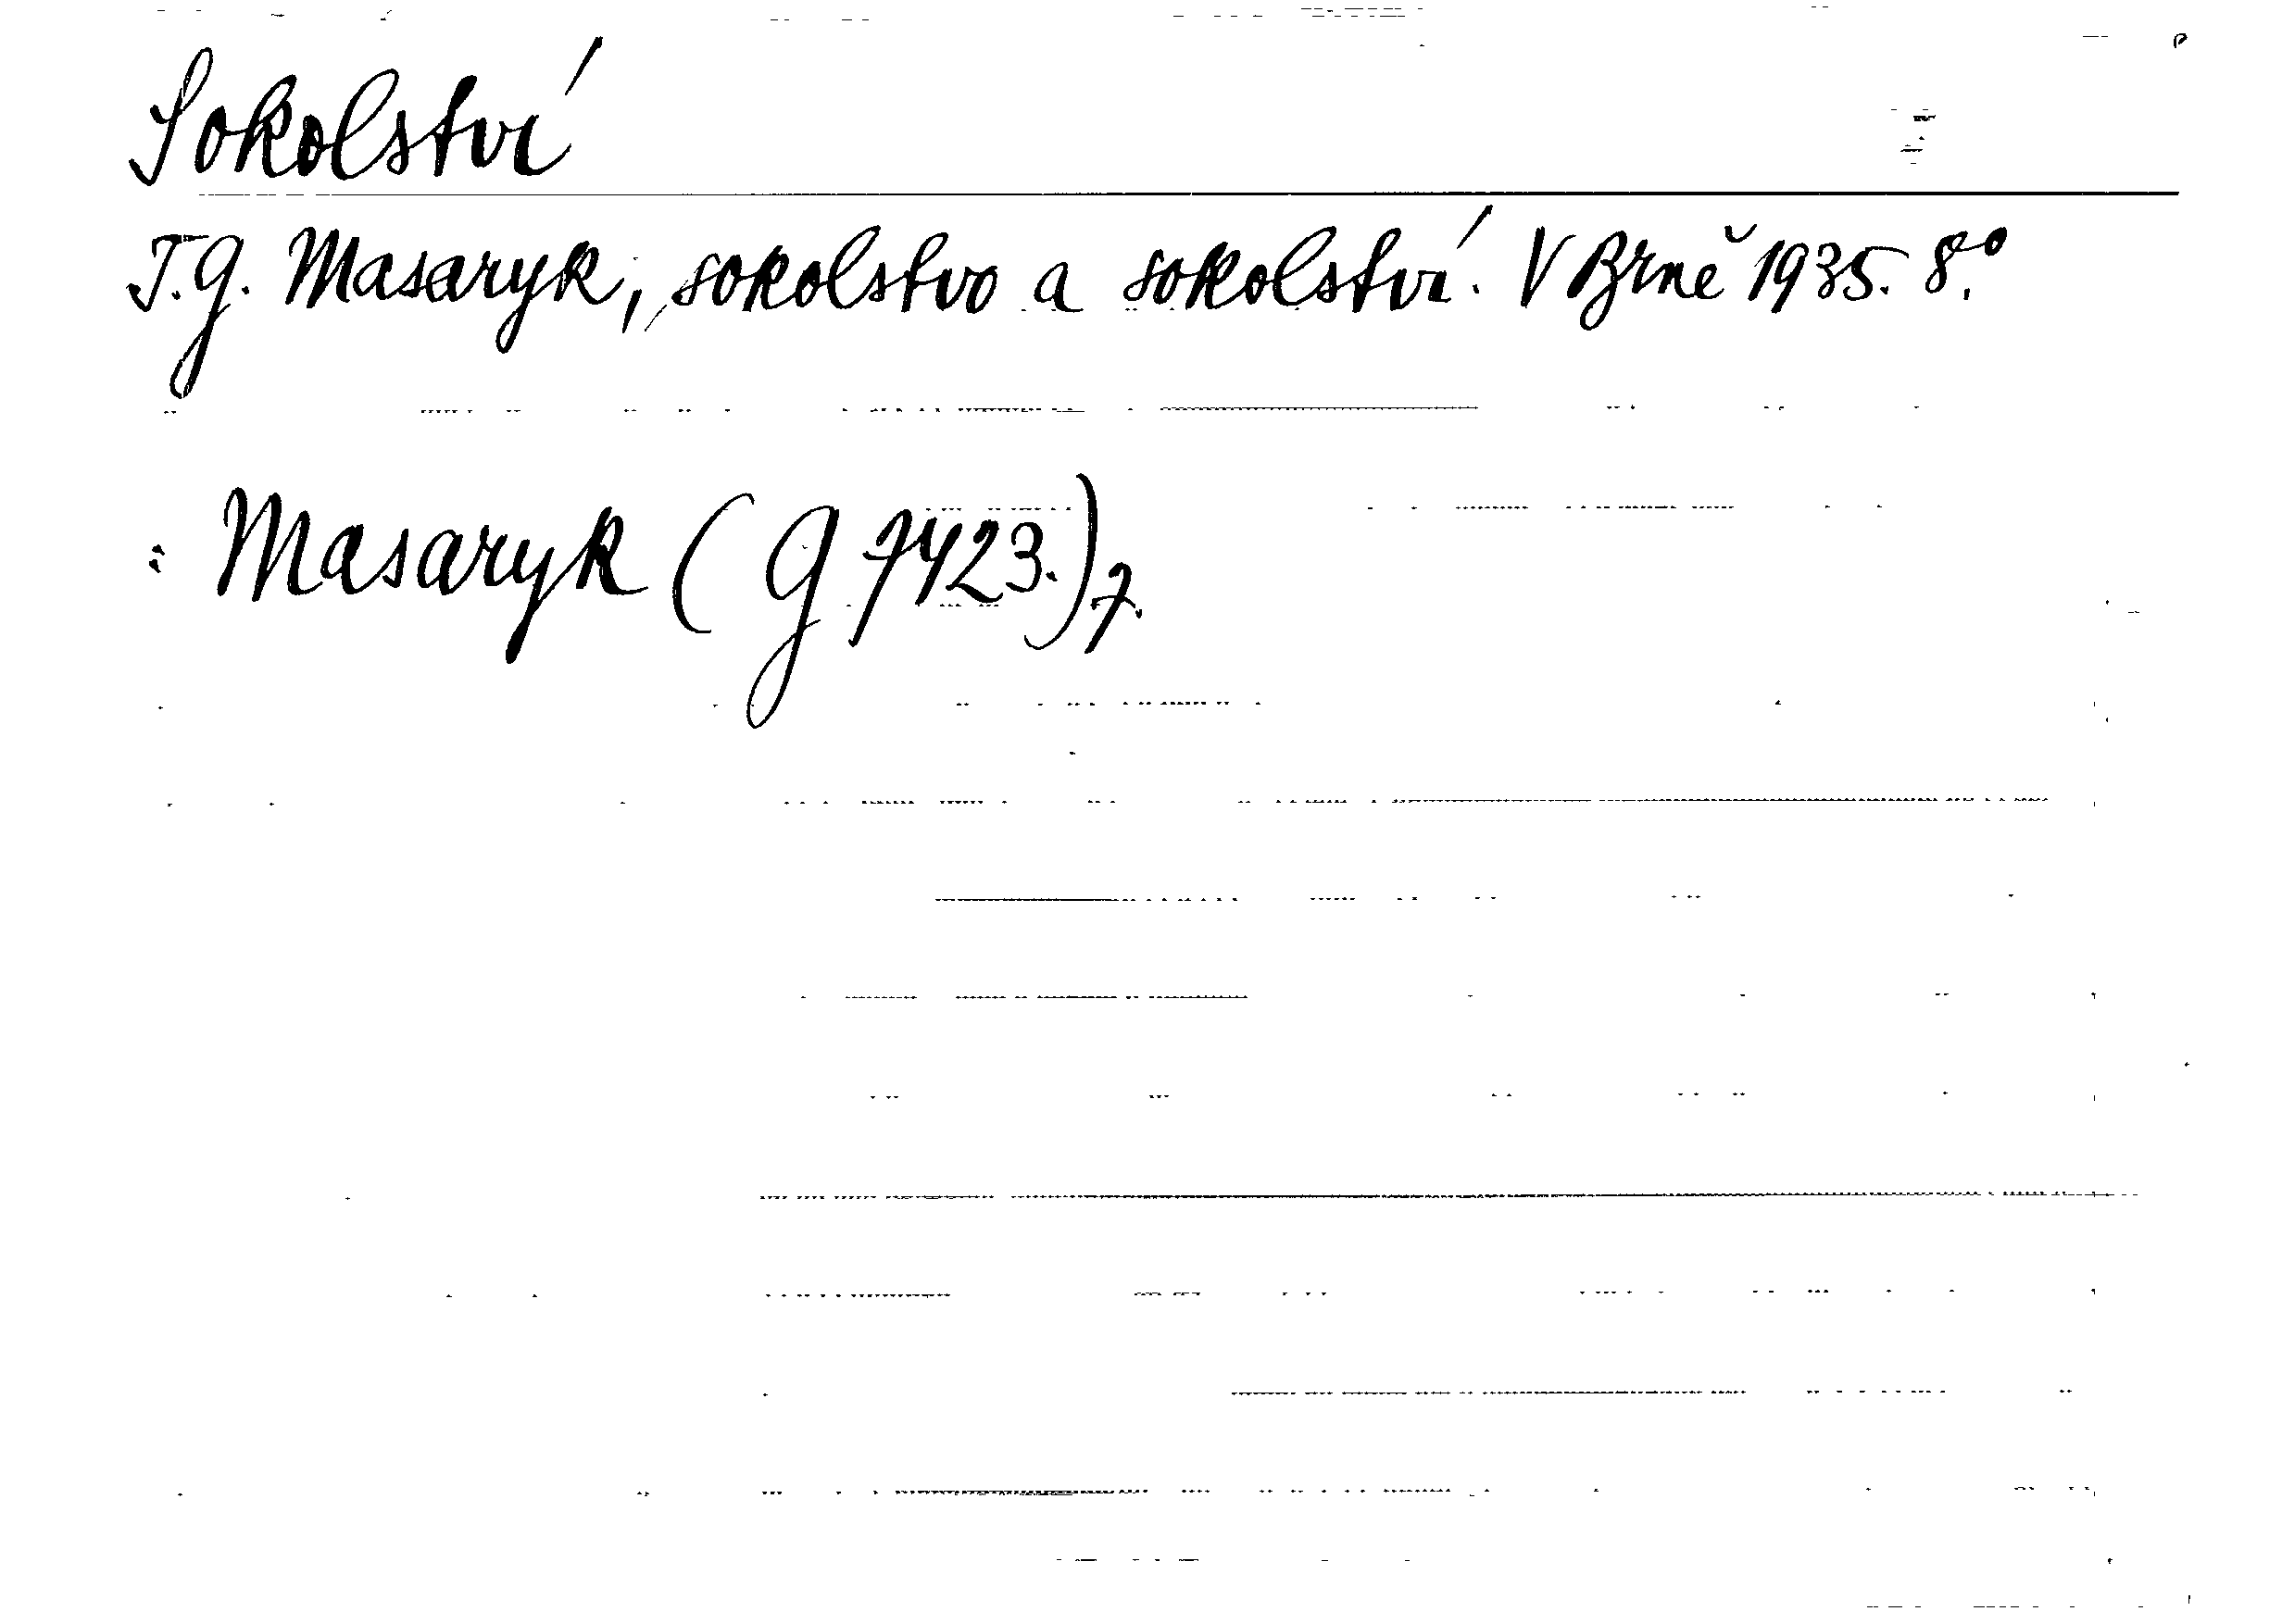 Sokolství
T.G. Masaryk, sokolstvo a sokolství. V Brně 1935. 8.°
: Masaryk (G 7423.) 7.